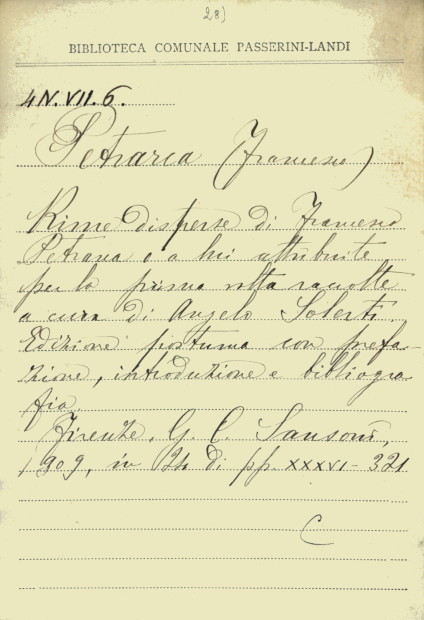 28)
BIBLIOTECA COMUNALE PASSERINI-LANDI
4N.VII.6.
Petrarca (Francesco)
Rime disperse di Francesco
Petrarca o a lui attribuite
per la prima volta raccolte
a cura di Angelo Solerti.
Edizione postuma con prefa-
zione, introduzione e bibliogra-
fia.
Firenze, G. C. Sansoni,
1909, in 24 di pp. XXXVI-321
C